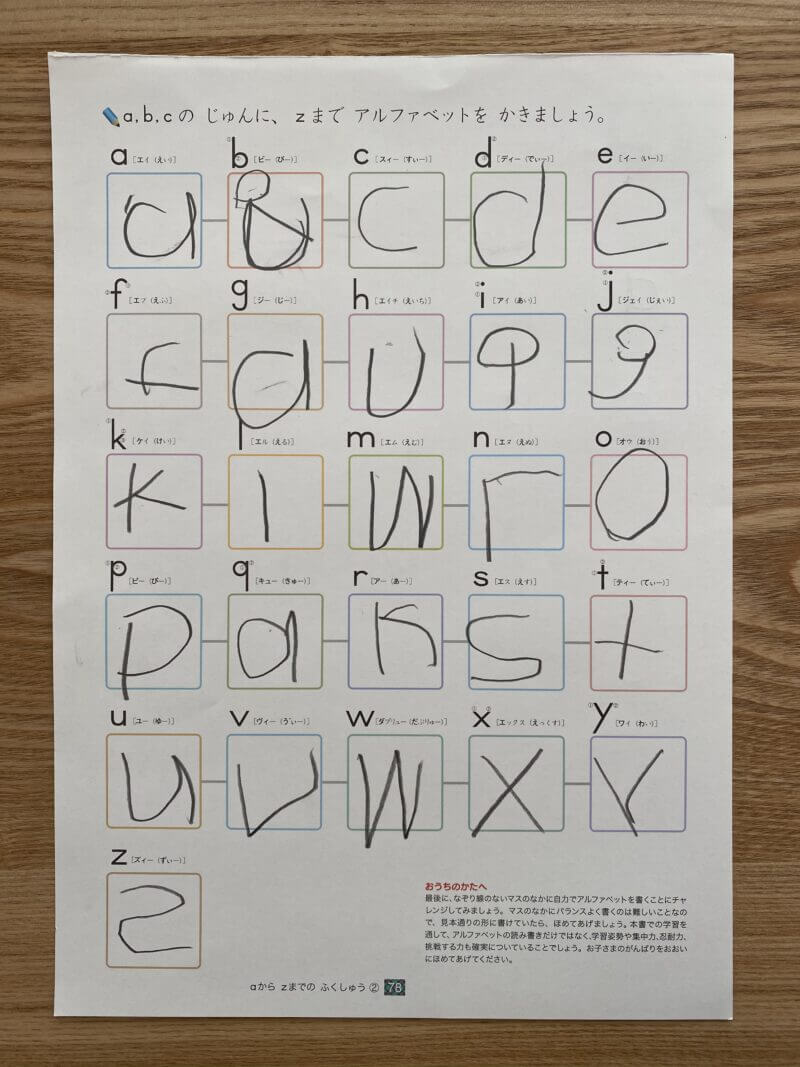 a,b,cの じゅんに、 zまで アルファベットを かきましょう。
a [エイ（えい）] b [ビー（びー）] c [スィー（すぃー）] d [ディー（でぃー）] e [イー（いー）]
a & c d e
f [エフ（えふ）] g [ジー（じー）] h [エイチ（えいち）] i [アイ（あい）] j [ジェイ（じぇい）]
f a U 9
k [ケイ（けい）] l [エル（える）] m [エム（えむ）] n [エヌ（えぬ）] o [オウ（おう）]
k l W r O
p [ピー（ぴー）] q [キュー（きゅー）] r [アー（あー）] s [エス（えす）] t [ティー（てぃー）]
p q r s t
u [ユー（ゆー）] v [ヴィー（ゔぃー）] w [ダブリュー（だぶりゅー）] x [エックス（えっくす）] y [ワイ（わい）]
u v w x y
z [ズィー（ずぃー）]
z
おうちのかたへ
最後に、なぞり線のないマスのなかに自力でアルファベットを書くことにチャ
レンジしてみましょう。マスのなかにバランスよく書くのは難しいことなの
で、見本通りの形に書けていたら、ほめてあげましょう。本書での学習を
通して、アルファベットの読み書きだけではなく、学習姿勢や集中力、忍耐力、
挑戦する力も確実についていることでしょう。お子さまのがんばりをおおい
にほめてあげてください。
aから zまでの ふくしゅう ② 78